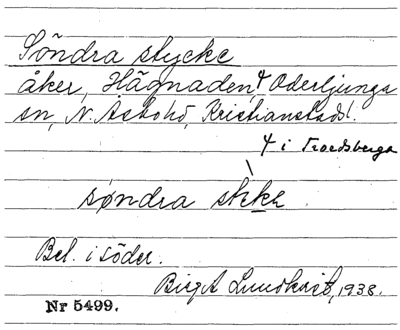 Söndra stycke
åker, Hägnaden, + Oderljunga
sn, N. Åsbohd, Kristianstads l.
+ i Troedsberga
søndra
Bel. i söder.
Birgit Lundkvist, 1938.
Nr 5499.